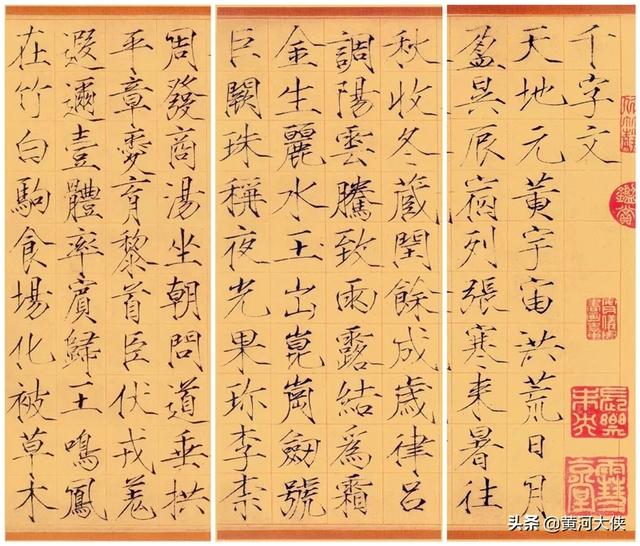 千字文
天地元黄宇宙洪荒日月
盈昃辰宿列張寒来暑往
秋收冬蔵閏餘成歲律吕
調陽雲騰致雨露結爲霜
金生麗水玉出崑崗劒號
巨闕珠稱夜光果珎李柰
周發商湯坐朝問道垂拱
平章愛育黎首臣伏戎羌
遐邇壹體率賓歸王鳴鳳
在竹白駒食場化被草木
头条 @黄河大侠